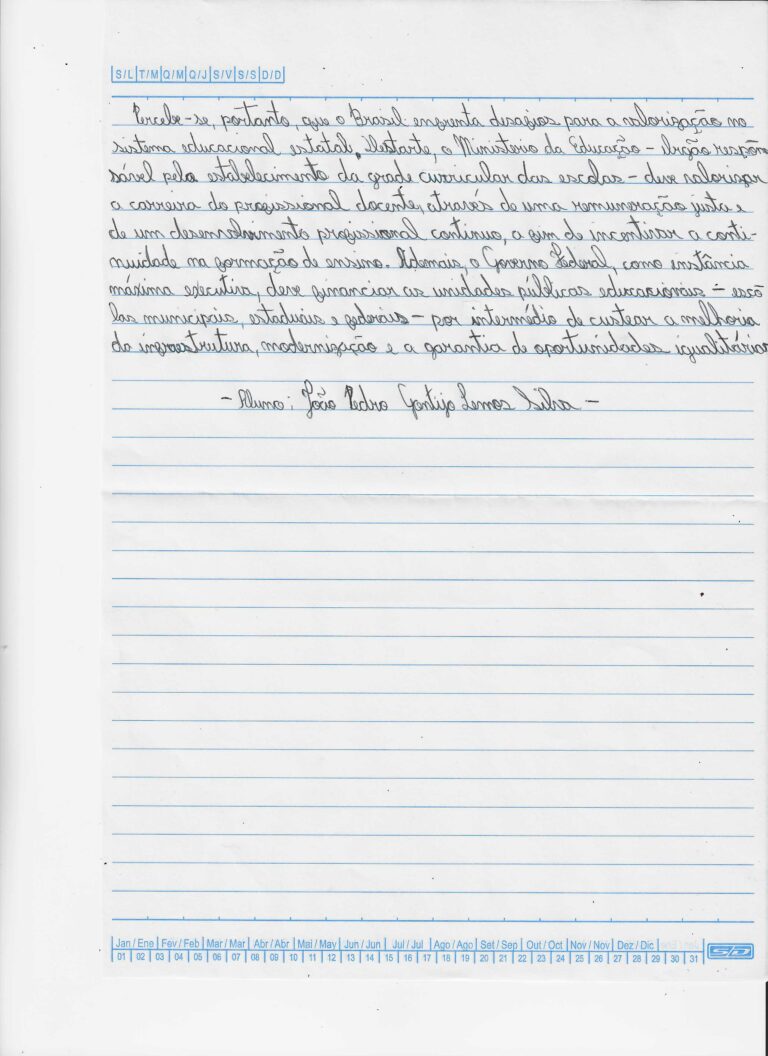 S/L T/M Q/M Q/J S/V S/S D/D
Percebe-se, portanto, que o Brasil enfrenta desafios para a valorização no
sistema educacional estatal. Destarte, o Ministério da Educação - órgão respon
sável pelo estabelecimento da grade curricular das escolas - deve valorizar
a carreira do profissional docente, através de uma remuneração justa e
de um desenvolvimento profissional contínuo, a fim de incentivar a conti-
nuidade na formação de ensino. Ademais, o Governo Federal, como instância
máxima executiva, deve financiar as unidades públicas educacionais - esco
las municipais, estaduais e federais - por intermédio de custear a melhoria
da infraestrutura, modernização e a garantia de oportunidades igualitárias
- Aluno: João Pedro Gontijo Lemos Silva -
Jan / Ene Fev / Feb Mar / Mar Abr / Abr Mai / May Jun / Jun Jul / Jul Ago / Ago Set / Sep Out / Oct Nov / Nov Dez / Dic
01 02 03 04 05 06 07 08 09 10 11 12 13 14 15 16 17 18 19 20 21 22 23 24 25 26 27 28 29 30 31
SD